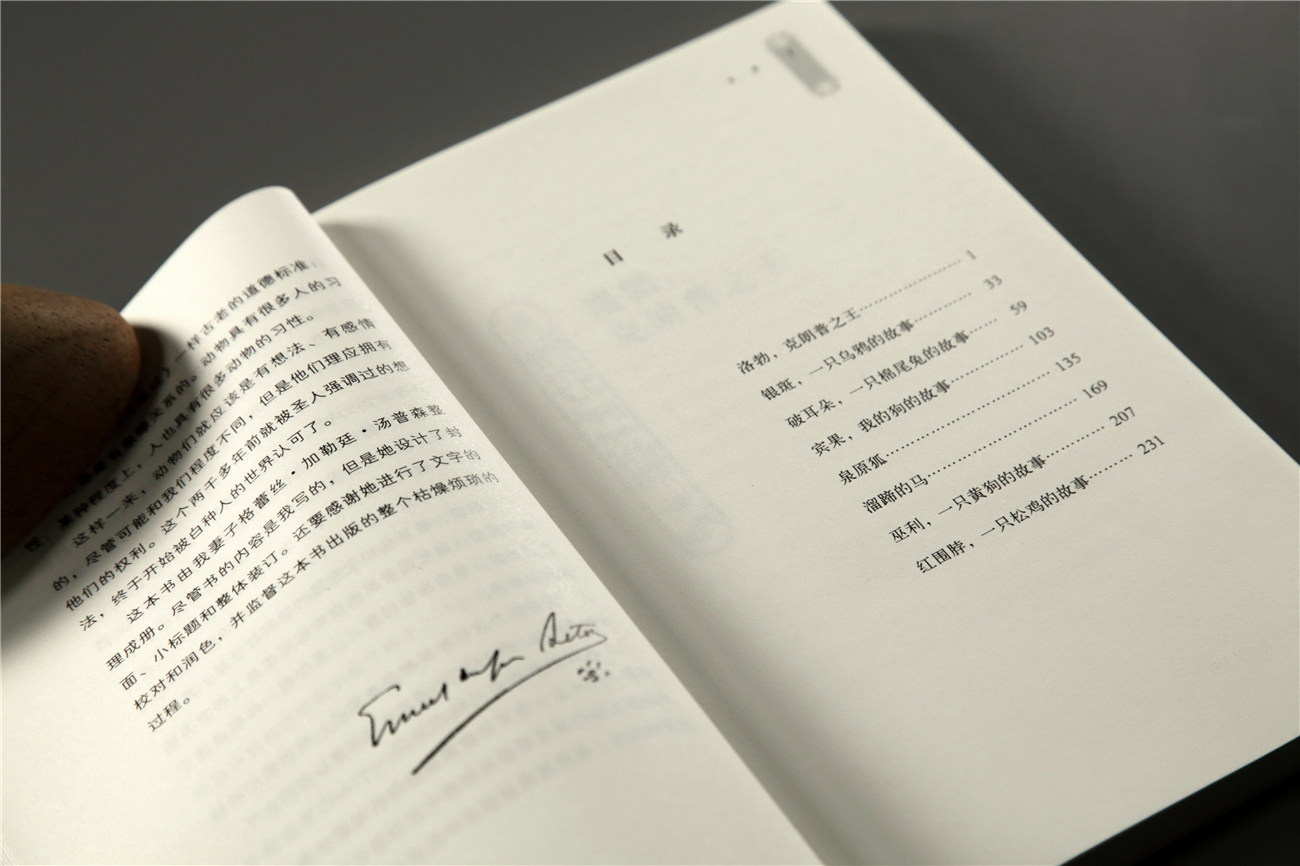 一样古老的道德标准：
亲缘关系的。动物具有很多人的习
某种程度上，人也具有很多动物的习性。
这样一来，动物们就应该是有想法、有感情
的，尽管可能和我们程度不同，但是他们理应拥有
他们的权利。这个两千多年前就被圣人强调过的想
法，终于开始被白种人的世界认可了。
这本书由我妻子格蕾丝·加勒廷·汤普森整
理成册。尽管书的内容是我写的，但是她设计了封
面、小标题和整体装订。还要感谢她进行了文字的
校对和润色，并监督这本书出版的整个枯燥烦琐的
过程。
目 录
洛勃，克朗普之王……………… 1
银斑，一只乌鸦的故事……………… 33
破耳朵，一只棉尾兔的故事……… 59
宾果，我的狗的故事……………… 103
泉原狐……………… 135
溜蹄的马……………… 169
巫利，一只黄狗的故事……………… 207
红围脖，一只松鸡的故事……… 231